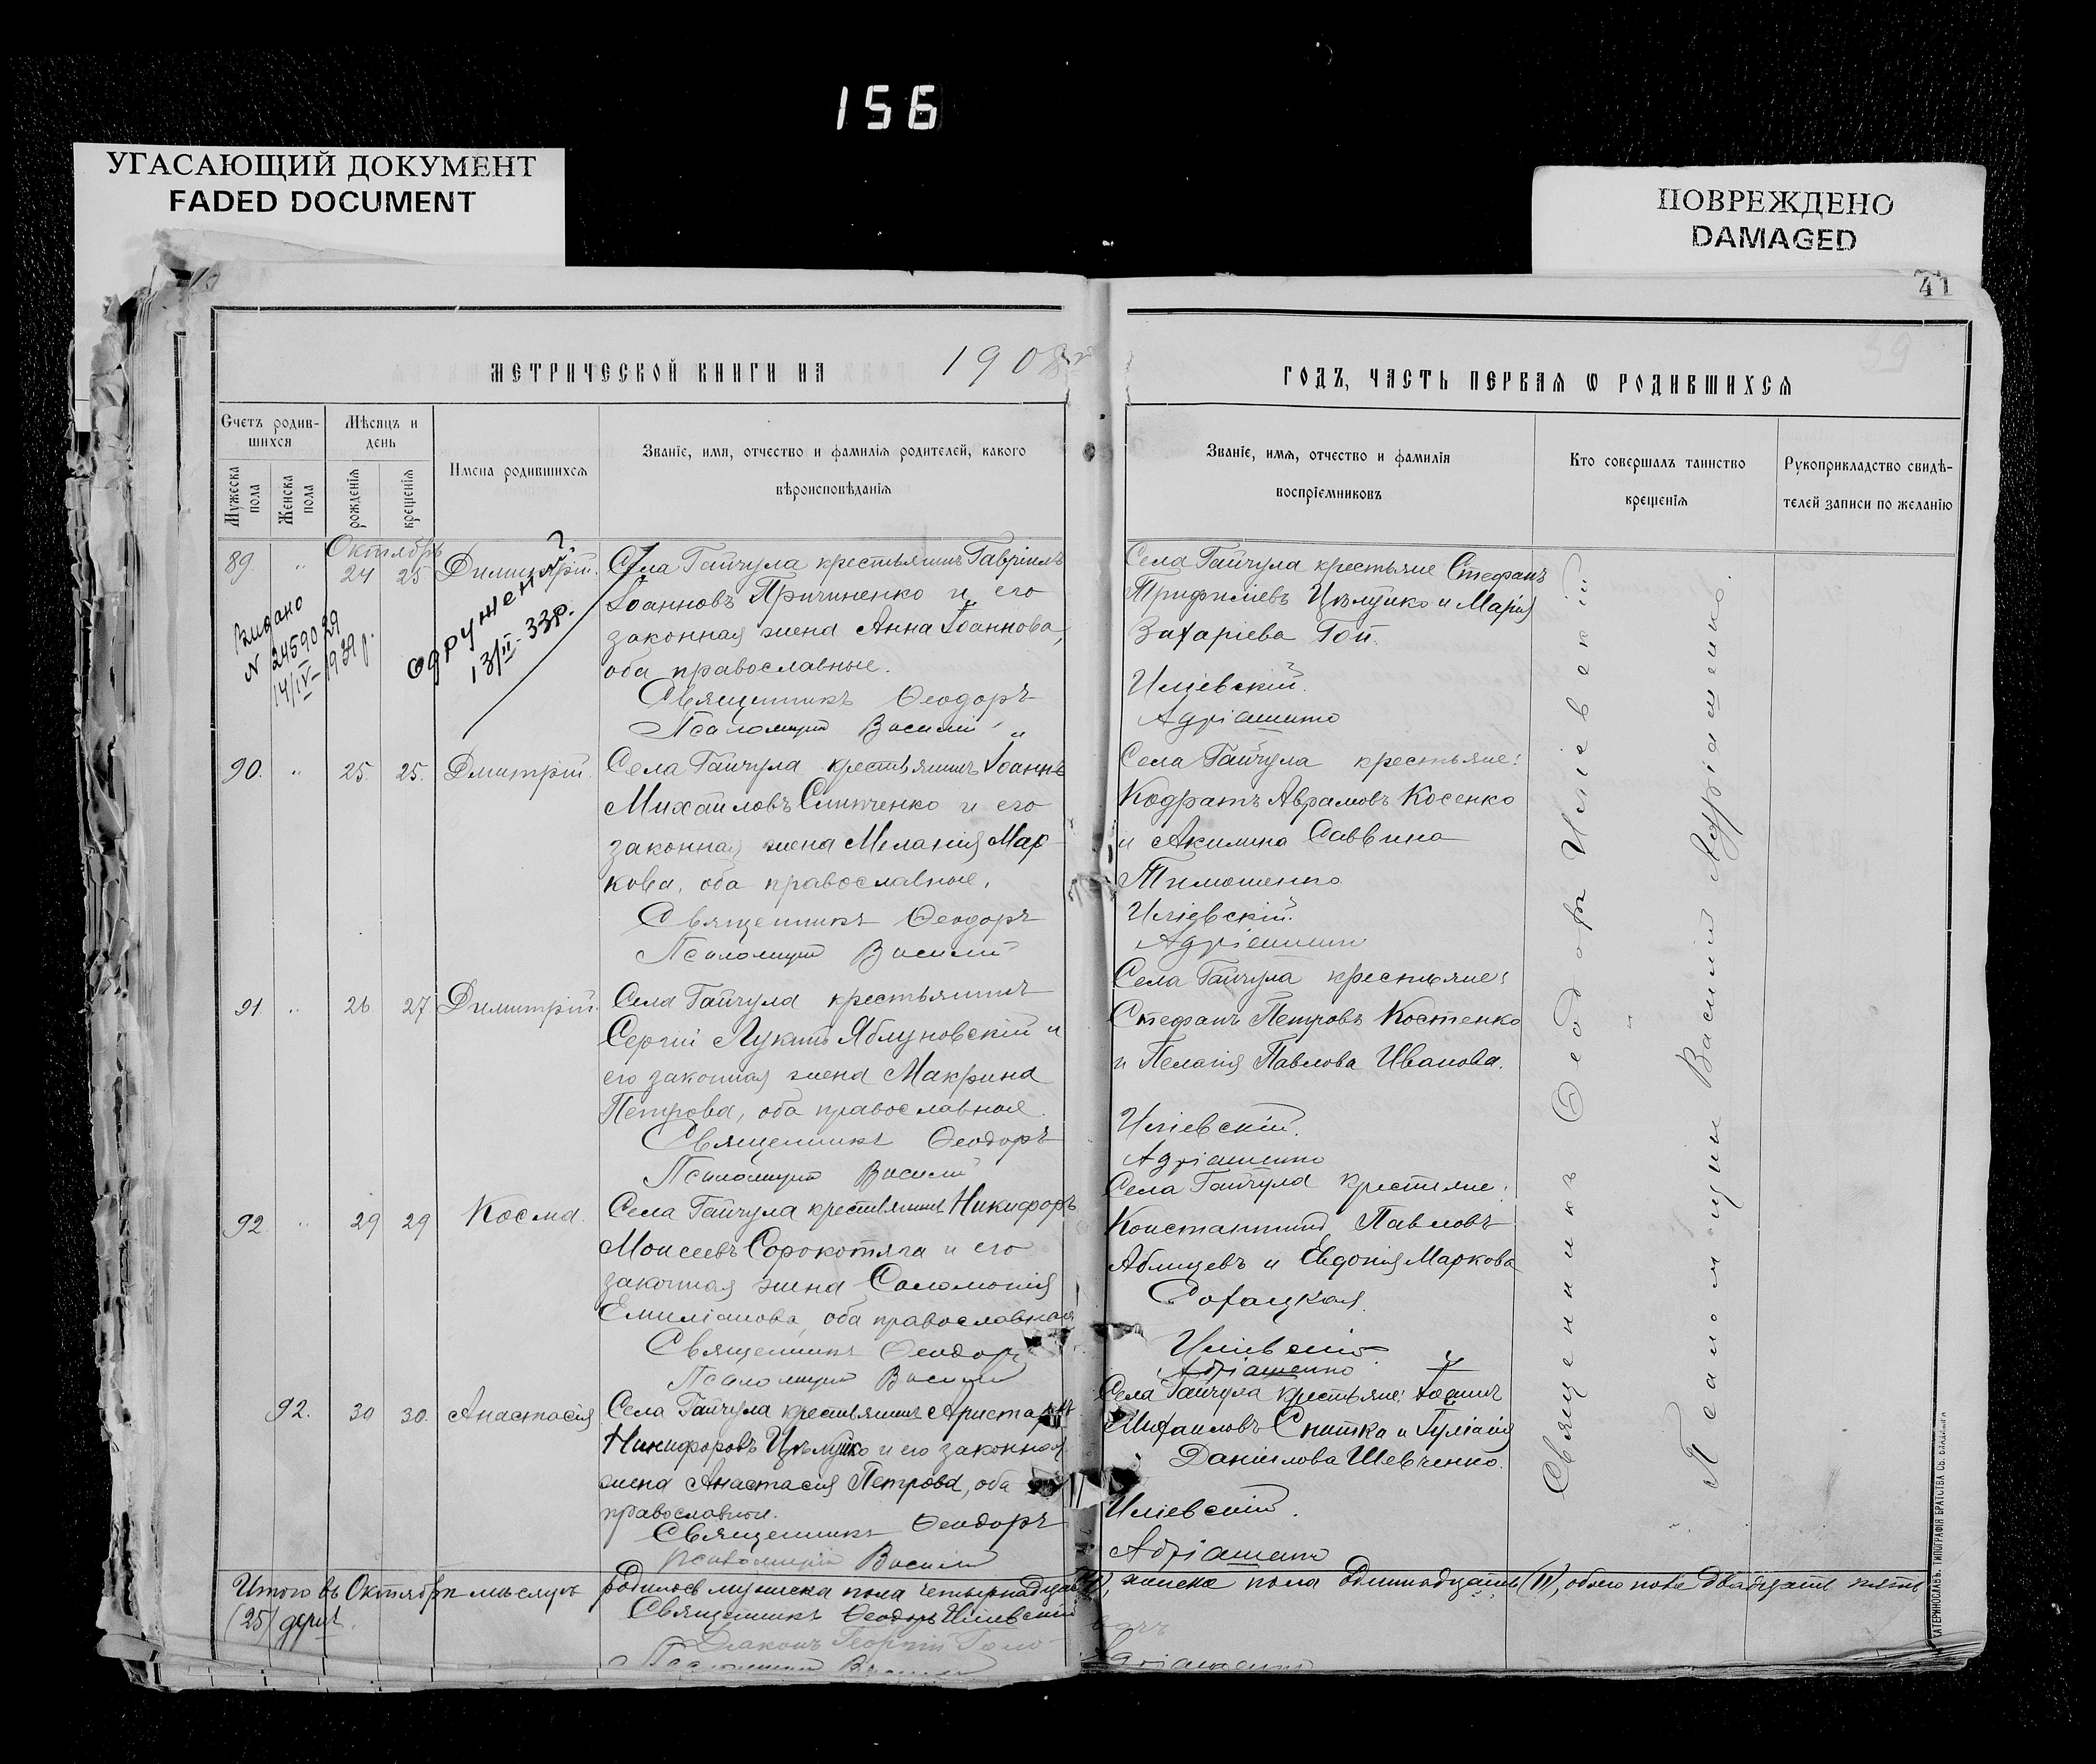 156
УГАСАЮЩИЙ ДОКУМЕНТ
FADED DOCUMENT
ПОВРЕЖДЕНО
DAMAGED
41
39
МЕТРИЧЕСКОЙ КНИГИ НА 1908 ГОДЪ, ЧАСТЬ ПЕРВАѦ Ѡ РОДИВШИХСѦ
Счетъ родив-
шихся
Мужеска
пола
Женска
пола
Мѣсяцъ и
день
рожденія
крещенія
Имена родившихся
Званіе, имя, отчество и фамилія родителей, какого
вѣроисповѣданія
Званіе, имя, отчество и фамилія
воспріемниковъ
Кто совершалъ таинство
крещенія
Рукоприкладство свидѣ-
телей записи по желанію
Октябрь
89. " 24 25 Димитрій.
Села Гайчула крестьянинъ Гавріилъ
Іоанновъ Причиненко и его
законная жена Анна Іоаннова,
оба православные.
Священникъ Ѳеодоръ
Псаломщикъ Василій
Села Гайчула крестьяне Стефанъ
Трифилiевъ Цѣлуйко и Марія
Захаріева Гой.
Иліевскій.
Адріашенко
Видано
N 2459029
14/IV 1939 р.
одружений
13/II-33р.
90. " 25. 25. Дмитрій.
Села Гайчула крестьянинъ Іоаннъ
Михайловъ Слипченко и его
законная жена Меланія Мар-
кова, оба православные.
Священникъ Ѳеодоръ
Псаломщикъ Василій
Села Гайчула крестьяне:
Кодратъ Аврамовъ Косенко
и Акилина Саввина
Тимошенко
Иліевскій.
Адріашенко
91. " 26. 27. Димитрій.
Села Гайчула крестьянинъ
Сергій Лукинъ Яблуновскій и
его законная жена Макрина
Петрова, оба православные.
Священникъ Ѳеодоръ
Псаломщикъ Василій
Села Гайчула крестьяне:
Стефанъ Петровъ Костенко
и Пелагія Павлова Иванова.
Иліевскій.
Адріашенко
92. " 29 29 Косма.
Села Гайчула крестьянинъ Никифоръ
Моисеевъ Сорокотяга и его
законная жена Соломонія
Емиліанова, оба православные
Священникъ Ѳеодоръ
Псаломщикъ Василій
Села Гайчула крестьяне:
Константинъ Павловъ
Аблицевъ и Евдокія Маркова
Рогацкая.
Иліевскій
Адріашенко
92. 30 30. Анастасія
Села Гайчула крестьянинъ Аристархъ
Никифоровъ Цѣлуйко и его законная
жена Анастасія Петрова, оба
православные.
Священникъ Ѳеодоръ
Псаломщикъ Василій
Села Гайчула крестьяне: Іоаннъ
Михайловъ Снитка и Іуліанія
Даніилова Шевченко.
Иліевскій.
Адріашенко
Священникъ Ѳеодоръ Иліевскій
Псаломщикъ Василій Адріашенко.
Итого въ Октябрѣ мѣсяцѣ родилось мужеска пола четырнадцать, женска пола одиннадцать (11), обоего пола двадцать пять
(25) душъ.
Священникъ Ѳеодоръ Иліевскій
Діаконъ Георгій
Псаломщикъ Василій Адріашенко
ЕКАТЕРИНОСЛАВЪ. ТИПОГРАФІЯ БРАТСТВА СВ. ВЛАДИМІРА